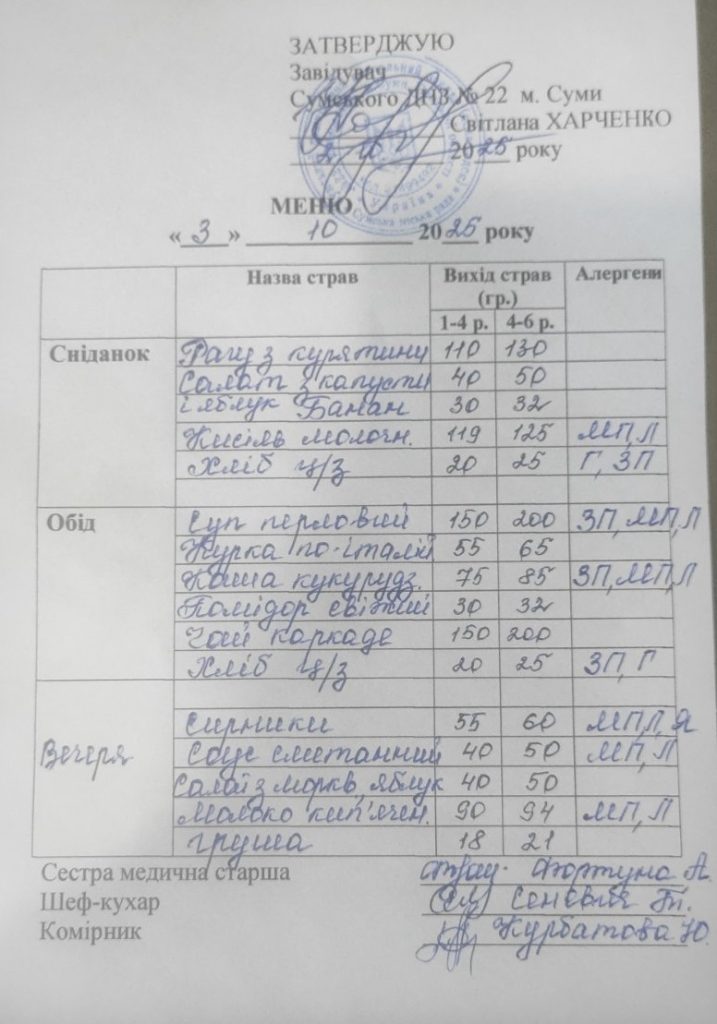 ЗАТВЕРДЖУЮ
Завідувач
Сумського ДНЗ № 22 м. Суми
Світлана ХАРЧЕНКО
2025 року
МЕНЮ
« 3 » 10 2025 року
Назва страв Вихід страв (гр.) Алергени
1-4 р. 4-6 р.
Сніданок Рагу з курятини 110 130
Салат з капусти 40 50
і яблук Банан 30 32
Кисіль молочн. 119 125 МП, Л
Хліб ц/з 20 25 Г, ЗП
Обід Суп перловий 150 200 ЗП, МП, Л
Курка по-італій 55 65
Каша кукурудз. 75 85 ЗП, МП, Л
Помідор свіжий 30 32
Чай каркаде 150 200
Хліб ц/з 20 25 ЗП, Г
Вечеря Сирники 55 60 МП, Л, Я
Соус сметанний 40 50 МП, Л
Салат з моркв, яблук 40 50
Молоко кип'ячен. 90 94 МП, Л
груша 18 21
Сестра медична старша Фортуна А.
Шеф-кухар
Комірник Курбатова Ю.